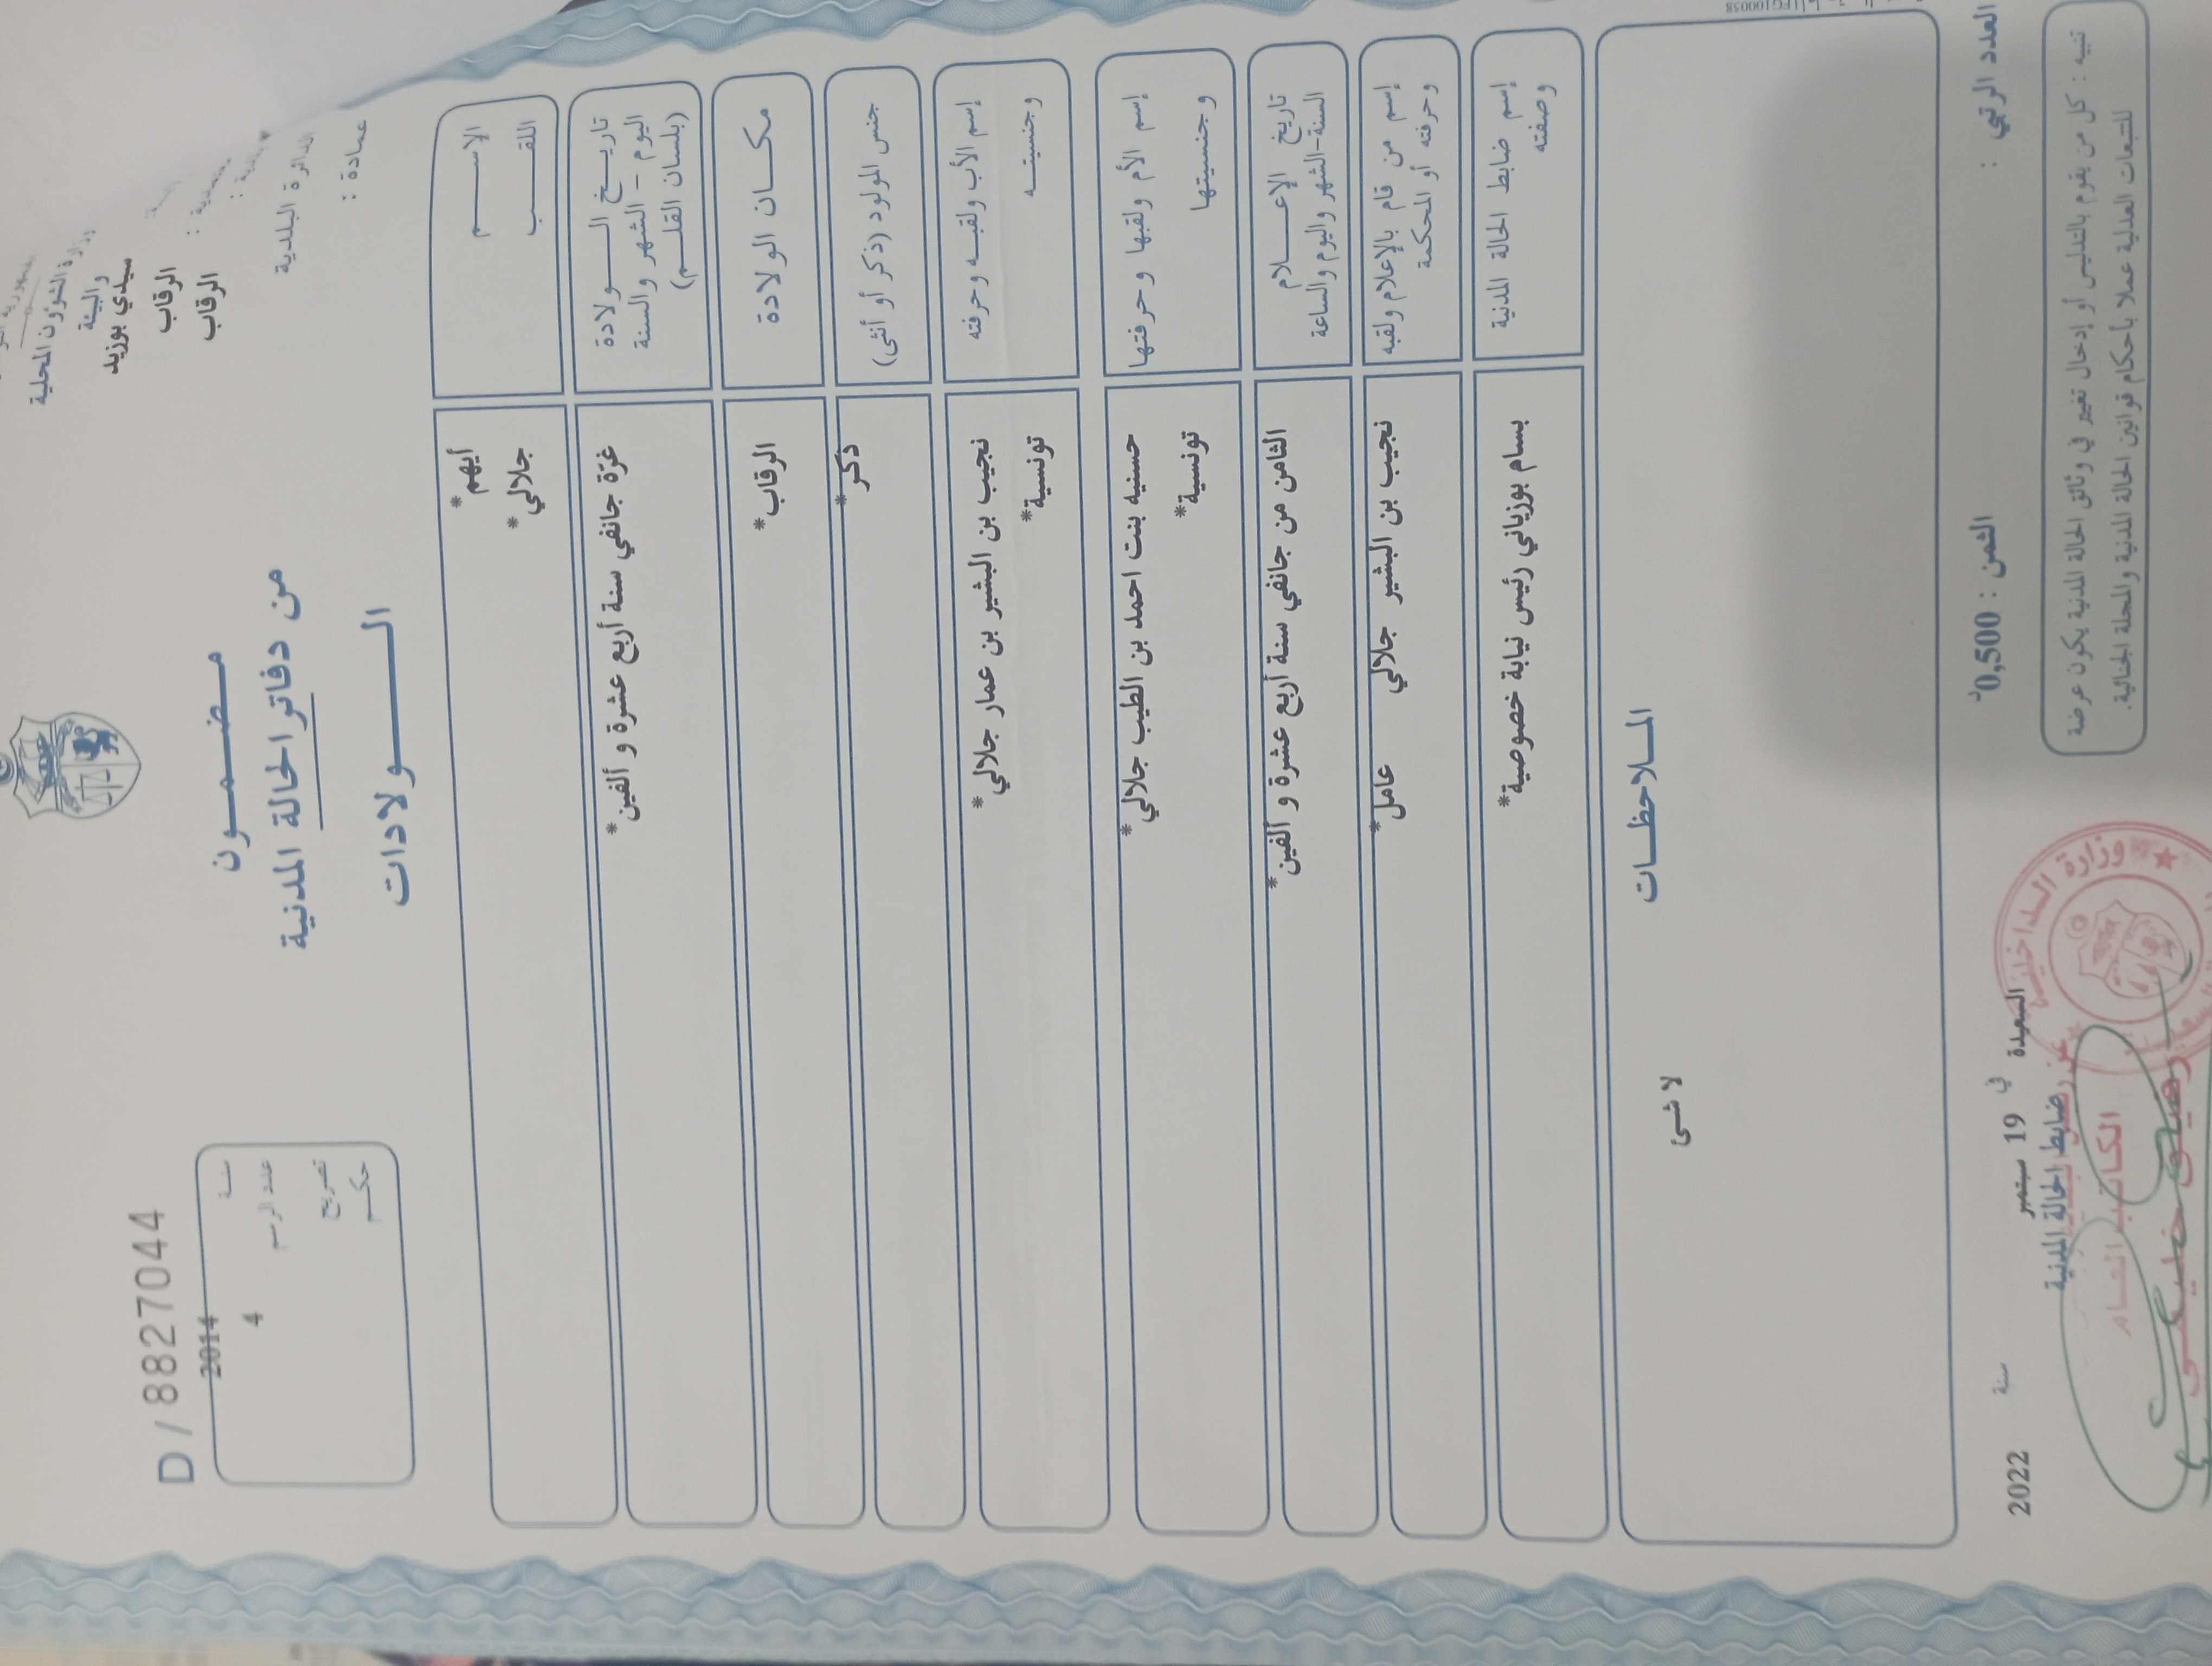 وزارة الشؤون المحلية
والبيئة
سيدي بوزيد
الرقاب
الرقاب
الدائرة البلدية
عمادة :
D / 8827044
سنة 2014
عدد الرسم 4
تصريح
حكم
مضمون
من دفاتر الحالة المدنية
الولادات
الإسم أيهم*
اللقب جلالي*
تاريخ الولادة
اليوم - الشهر والسنة
(بلسان القلم)
غرّة جانفي سنة أربع عشرة و ألفين*
مكان الولادة الرقاب*
جنس المولود (ذكر أو أنثى) ذكر*
إسم الأب ولقبه وحرفته نجيب بن البشير بن عمار جلالي*
وجنسيته تونسية*
إسم الأم ولقبها وحرفتها حسنيه بنت احمد بن الطيب جلالي*
وجنسيتها تونسية*
تاريخ الإعلام
السنة-الشهر واليوم والساعة
الثامن من جانفي سنة أربع عشرة و ألفين*
إسم من قام بالإعلام ولقبه
وحرفته أو المحكمة
نجيب بن البشير جلالي عامل*
إسم ضابط الحالة المدنية
وصفته
بسام بوزياني رئيس نيابة خصوصية*
الملاحظات
لا شئ
العدد الرتبي :
الثمن : 0,500د
السعيدة في 19 سبتمبر سنة 2022
ضابط الحالة المدنية
وزارة الداخلية
الكاتب العام
تنبيه : كل من يقوم بالتدليس أو إدخال تغيير في وثائق الحالة المدنية يكون عرضة
للتتبعات العدلية عملا بأحكام قوانين الحالة المدنية والمجلة الجنائية.